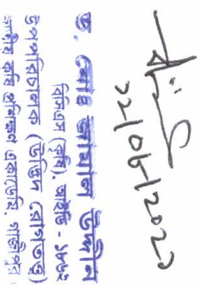 ২২/০৮/২০২৩
ড. মোঃ জামাল উদ্দীন
বিসিএস (কৃষি), আইডি - ১৮৮২
উপপরিচালক (উদ্ভিদ রোগতত্ত্ব)
জাতীয় কৃষি প্রশিক্ষণ একাডেমি, গাজীপুর